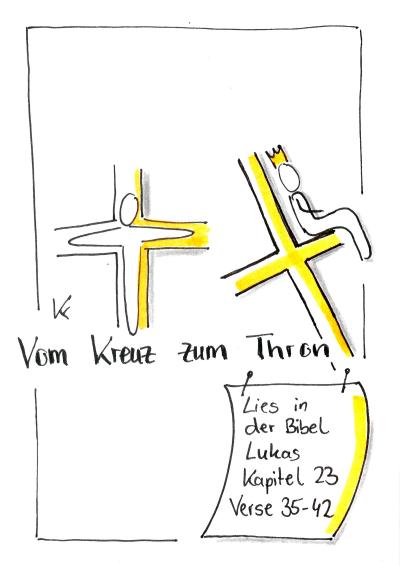 Vom Kreuz zum Thron
Lies in
der Bibel
Lukas
Kapitel 23
Verse 35-42